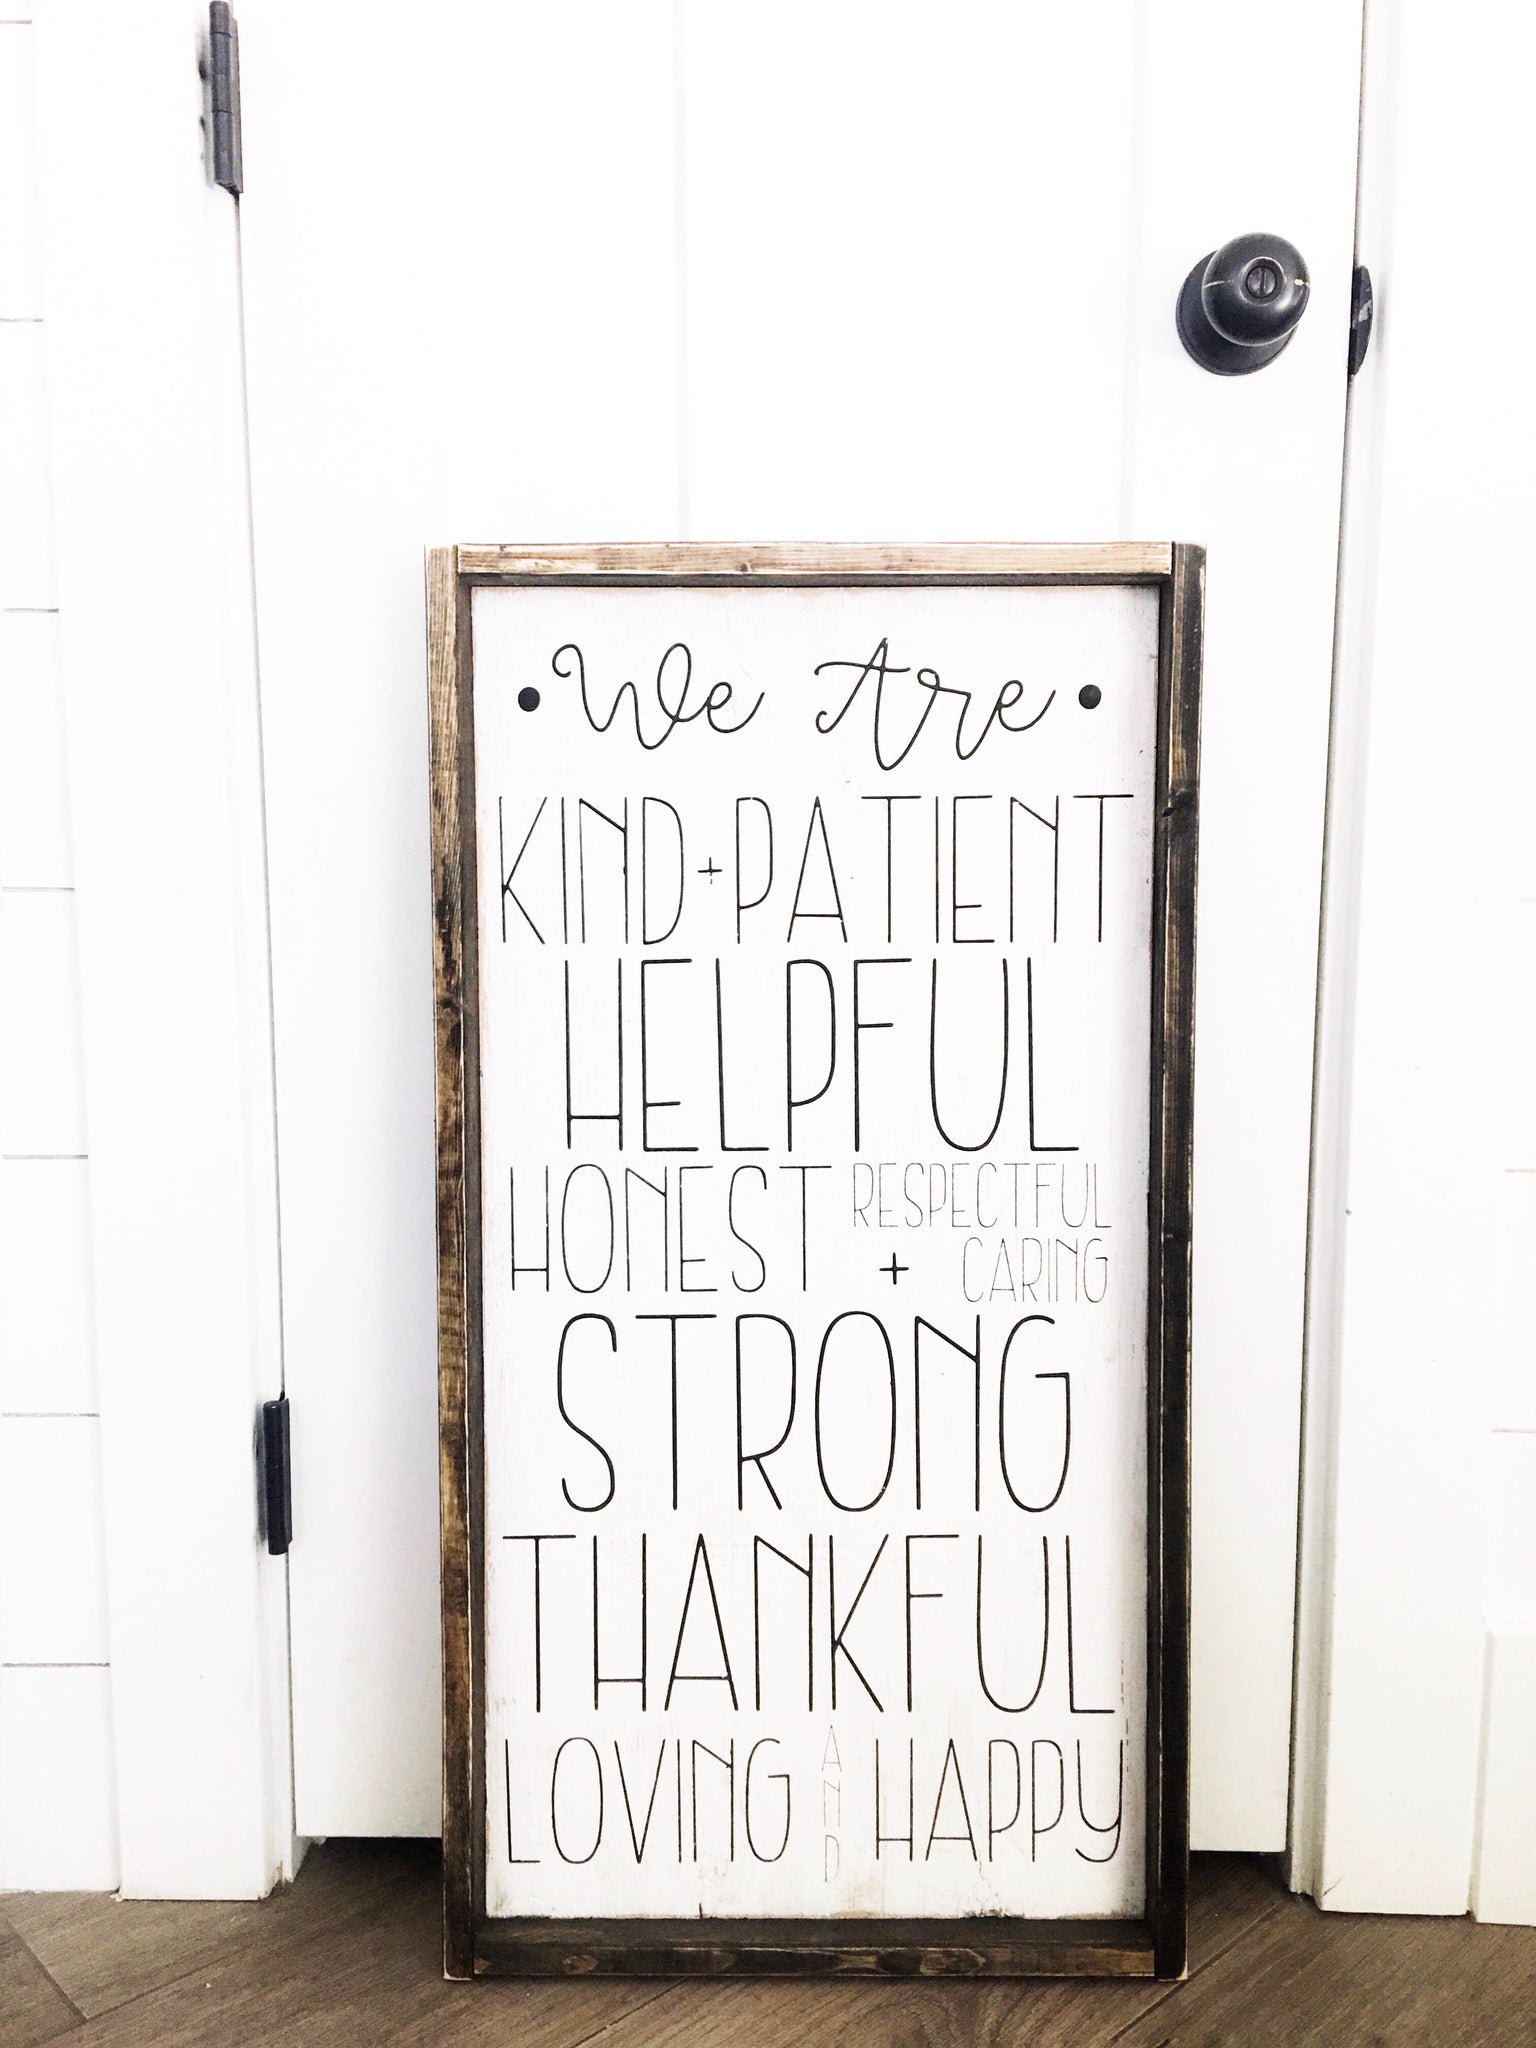 • We Are •
KIND + PATIENT
HELPFUL
HONEST RESPECTFUL
+ CARING
STRONG
THANKFUL
LOVING AND HAPPY